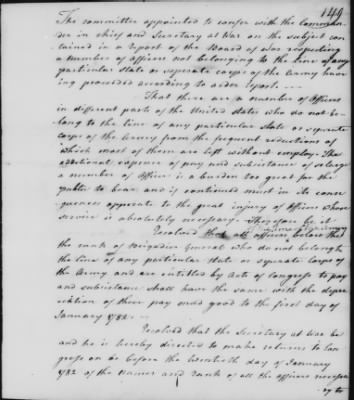 149
The committee appointed to confer with the Comman-
der in chief and Secretary at War on the subject con-
tained in a report of the Board of War respecting
a number of officers not belonging to the line of any
particular State or seperate corps of the Army hav-
ing proceeded according to order report. ---
That there are a number of Officers
in different parts of the United States who do not be-
long to the line of any particular state or separate
corps of the Army from the frequent reductions of
which most of them are left without employ. The
additional expence of pay and subsistance of so large
a number of Officers is a burden too great for the
public to bear and if continued must in its conse-
quences opperate to the great injury of Officers whose
service is absolutely necessary. Therefore be it
Resolved that all Officers below that
the rank of Brigadier General who do not belong to
the line of any particular state or seperate Corps of
the Army and are entitled by Acts of Congress to pay
and subsistance shall have the same with the depre-
ciation of their pay made good to the first day of
January 1782. ---
Resolved that the Secretary at War be
and he is hereby directed to make returns to Con
gress on or before the twentieth day of January
1782 of the Names and rank of all the officers necessa
ry to